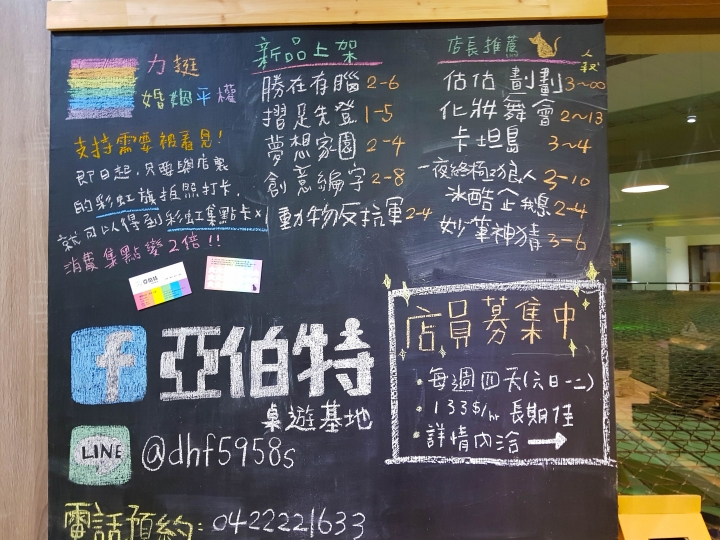 力挺
婚姻平權
支持需要被看見!
即日起,只要與店裏
的彩虹旗拍照打卡,
就可以得到彩虹集點卡x1
消費集點變2倍!!
新品上架
勝在有腦 2-6
摺足先登 1-5
夢想家園 2-4
創意編字 2-8
動物反抗軍 2-4
店長推薦
人數
估估劃劃 3~∞
化妝舞會 2~13
卡坦島 3~4
一夜終極狼人 3-10
冰酷企鵝 2-4
妙筆神猜 3-6
f 亞伯特
桌遊基地
LINE @dhf5958s
電話預約:0422221633
店員募集中
·每週四天(六日一二)
·133$/hr 長期佳
·詳情內洽→